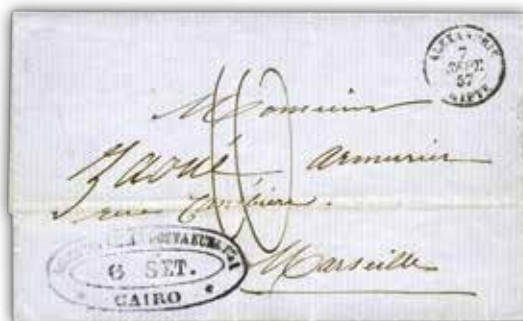 ALEXANDRIE
7
SEPT.
57
EGYPTE
Monsieur
Zaoué armurier
rue Canebiere.
Marseille
10
6 SET.
CAIRO